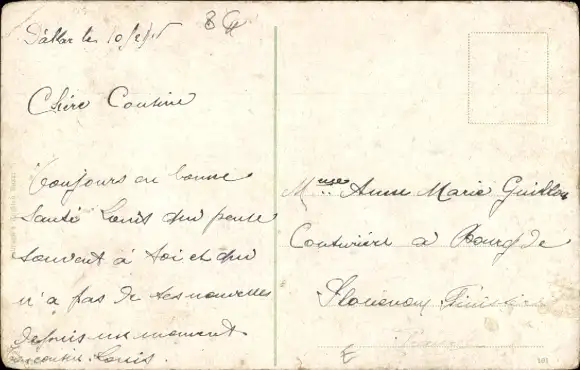 Dakar le 10/2/15
Chère Cousine
Toujours en bonne
santé Louis qui pense
souvent à toi et qui
n'a pas de tes nouvelles
depuis un moment
ton cousin Louis.
Anne Marie Guillou
Couturière a Bourg de
Plouenour Finistère
France